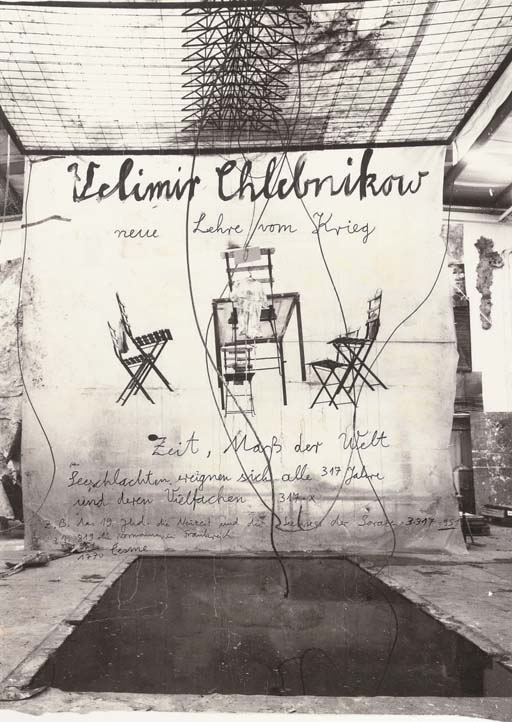 Velimir Chlebnikow
neue Lehre vom Krieg
Zeit, Maß der Welt
Seeschlachten ereignen sich alle 317 Jahre
und deren Vielfachen 317 x
z.B. das 19 Jhd. die Neuzeit und die der 3 317 = 951
z.B. 819 die Normannen Frankreich
1770 Cesme